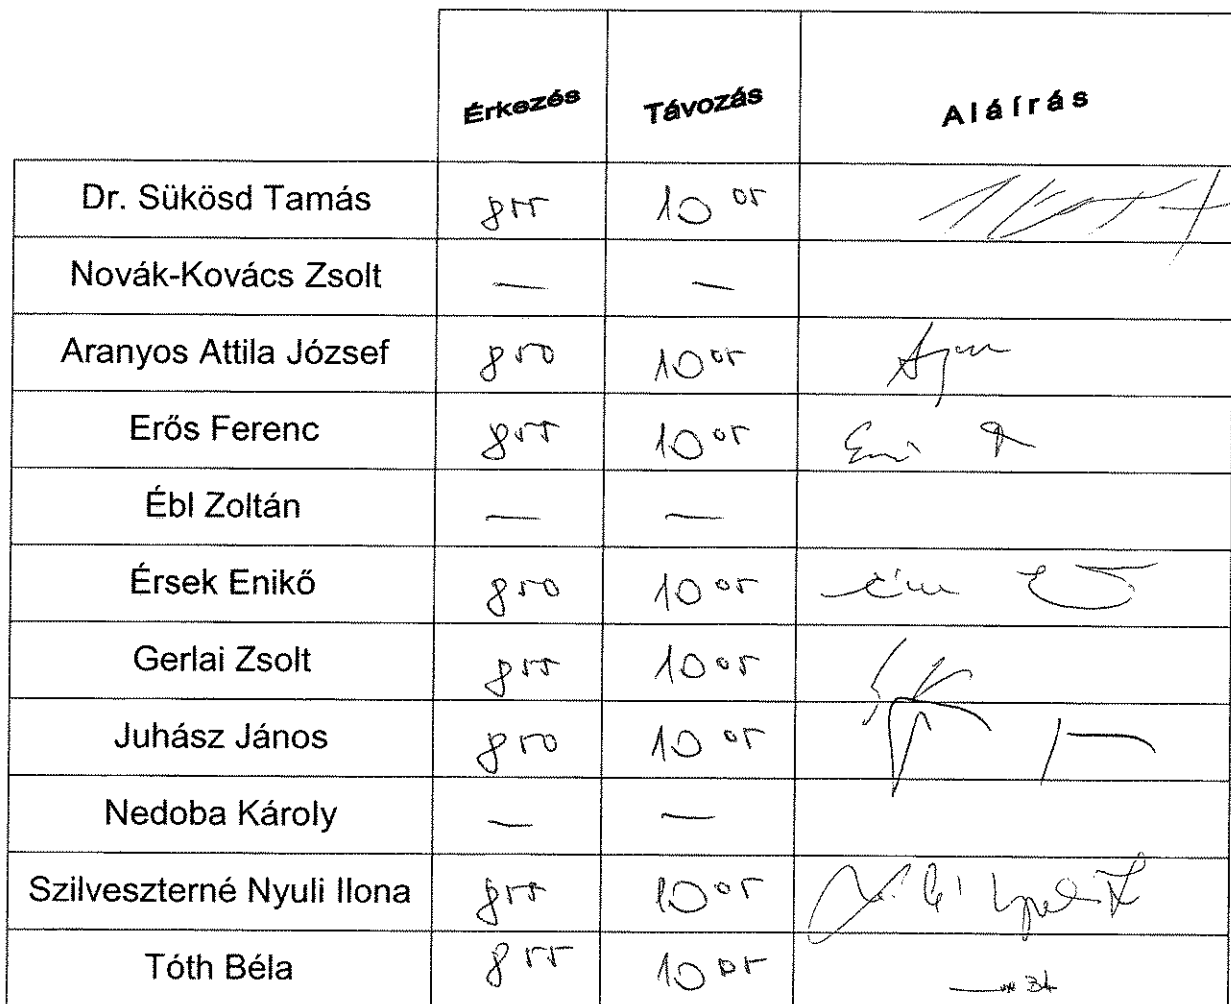 Érkezés Távozás Aláírás
Dr. Sükösd Tamás 8 55 10 05
Novák-Kovács Zsolt — —
Aranyos Attila József 8 50 10 05
Erős Ferenc 8 55 10 05
Ébl Zoltán — —
Érsek Enikő 8 50 10 05
Gerlai Zsolt 8 55 10 05
Juhász János 8 50 10 05
Nedoba Károly — —
Szilveszterné Nyuli Ilona 8 55 10 05
Tóth Béla 8 55 10 05